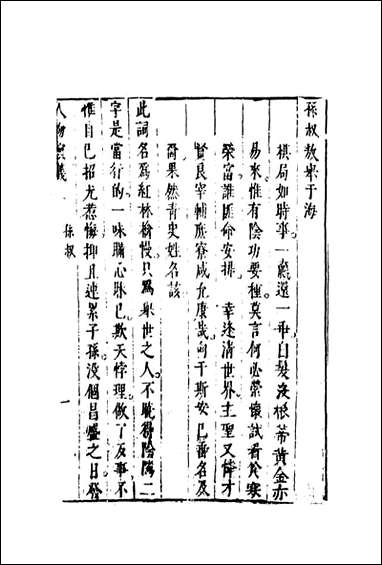 孫叔敖舉于海
棋局如時事。一還一番白髮沒根蒂黃金亦
易來惟有陰功要種。莫言何必縈懷試看貧寒
榮富誰匪命安排 幸逢清世界主聖又憐才
賢良宰輔庶寮咸允康哉向于斯安已番名及
裔果然青史姓名該
此詞名爲紅林檎慢。只爲舉世之人。不曉得陰隲二
字是當行的。一味瞞心昧己欺天悖理做了反事不
惟自己招尤惹悔抑且連累子孫沒個昌盛之日發
人物演義 孫叔 一